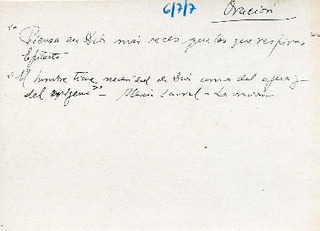 6/7/7 Oración
"Piensa en Dios más veces que las que respiras"
Epicteto
"El hombre tiene necesidad de Dios como del agua y
del oxígeno" - Alexis Carrel - La oración